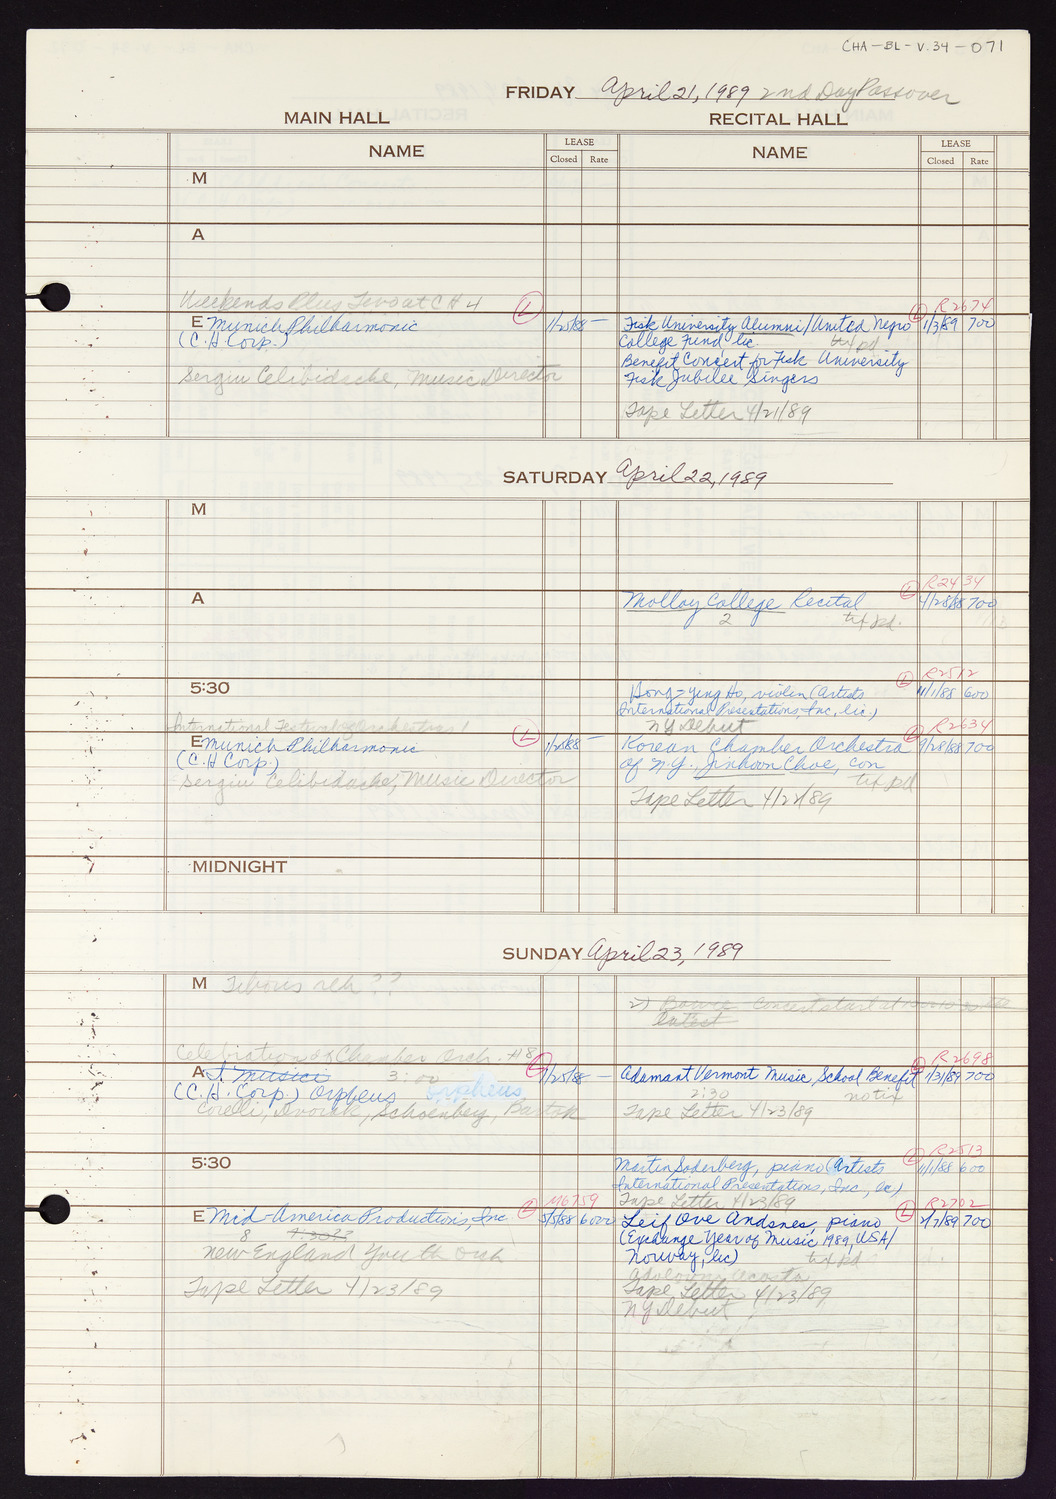 CHA-BL-V.34-071
FRIDAY April 21, 1989 2nd Day Passover
MAIN HALL
RECITAL HALL
NAME
LEASE
Closed Rate
NAME
LEASE
Closed Rate
M
A
Weekends Plus
E Munich Philharmonic
(C.H Corp.)
L
1/25/88 —
Sergiu Celibidache, Music Director
R2674
Fisk University Alumni/United Negro
L
1/3/89 700
College Fund, lic.
tix pd.
Benefit Concert for Fisk University
Fisk Jubilee Singers
Tape Letter 4/21/89
SATURDAY April 22, 1989
M
A
R2434
Molloy College Recital
L
4/28/88 700
2
tix pd.
5:30
R2512
Hong-Ying Ho, violin (Artists
L
11/1/88 600
International Presentations, Inc., lic.)
NY Debut
International Festival of Orchestras I
E Munich Philharmonic
(C.H Corp.)
L
1/25/88 —
Sergiu Celibidache, Music Director
R2634
Korean Chamber Orchestra
L
9/28/88 700
of N.Y., Jinhoon Choe, con
tix pd
Tape Letter 4/22/89
MIDNIGHT
SUNDAY April 23, 1989
M
2) Concert start at
latest
Celebration of Chamber Orch. #8
A I Musici 3:00
L
1/25/88 —
(C.H. Corp.) Orpheus Orpheus
Corelli, Dvorak, Schoenberg, Bartok
R2698
Adamant Vermont Music School Benefit
L
1/31/89 700
2:30
no tix
Tape Letter 4/23/89
5:30
R2513
Martin Soderberg, piano (Artists
L
11/1/88 600
International Presentations, Inc., lic)
Tape Letter 4/23/89
M6759
E Mid-America Productions, Inc
L
5/5/88 6000
8
New England Youth Orch
Tape Letter 4/23/89
R2702
Leif Ove Andsnes, piano
L
2/7/89 700
(Exchange Year of Music 1989, USA/
Norway, lic)
tix pd
Tape Letter 4/23/89
NY Debut